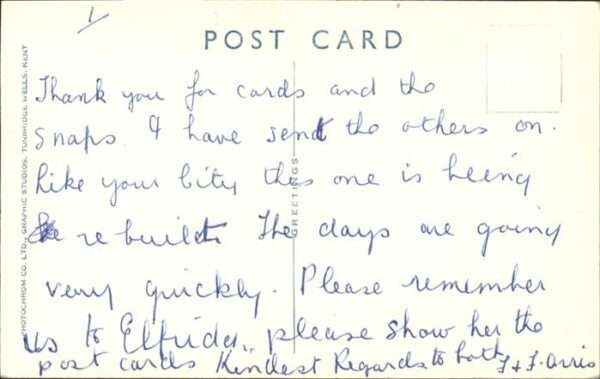 POST CARD
Thank you for cards and the
snaps I have sent the others on.
Like your City this one is being
re built. The days are going
very quickly. Please remember
us to Elfrida, please show her the
post cards Kindest Regards to both
PHOTOCHROM CO. LTD., GRAPHIC STUDIOS, TUNBRIDGE WELLS, KENT
GREETINGS